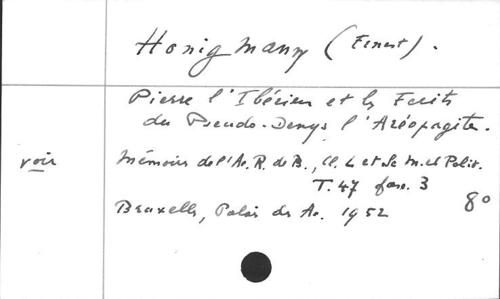 Honigmann (Ernest).
Pierre l'Ibérien et les Ecrits
du Pseudo-Denys l'Aréopagite.
voir
Mémoires de l'Ac. R. de B., Cl. L et Sc. M. et Polit.
T. 47 fasc. 3
8°
Bruxelles, Palais des Ac. 1952